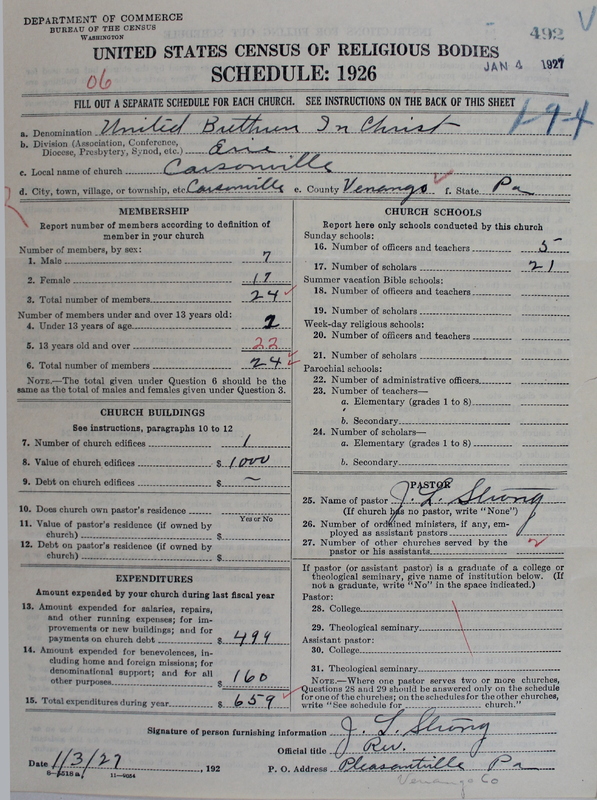 DEPARTMENT OF COMMERCE
BUREAU OF THE CENSUS
WASHINGTON
492
UNITED STATES CENSUS OF RELIGIOUS BODIES
SCHEDULE: 1926
JAN 4 1927
06
FILL OUT A SEPARATE SCHEDULE FOR EACH CHURCH. SEE INSTRUCTIONS ON THE BACK OF THIS SHEET
194
a. Denomination United Brethren In Christ
b. Division (Association, Conference, Diocese, Presbytery, Synod, etc.) Erie
c. Local name of church Carsonville
d. City, town, village, or township, etc. Carsonville e. County Venango f. State. Pa
MEMBERSHIP
Report number of members according to definition of
member in your church
Number of members, by sex:
1. Male 7
2. Female 17
3. Total number of members 24
Number of members under and over 13 years old:
4. Under 13 years of age 2
5. 13 years old and over 22
6. Total number of members 24
NOTE.—The total given under Question 6 should be the
same as the total of males and females given under Question 3.
CHURCH BUILDINGS
See instructions, paragraphs 10 to 12
7. Number of church edifices 1
8. Value of church edifices $ 1000
9. Debt on church edifices $ ~
10. Does church own pastor's residence
Yes or No
11. Value of pastor's residence (if owned by
church) $
12. Debt on pastor's residence (if owned by
church) $
EXPENDITURES
Amount expended by your church during last fiscal year
13. Amount expended for salaries, repairs,
and other running expenses; for im-
provements or new buildings; and for
payments on church debt $ 499
14. Amount expended for benevolences, in-
cluding home and foreign missions; for
denominational support; and for all
other purposes $ 160
15. Total expenditures during year $ 659
CHURCH SCHOOLS
Report here only schools conducted by this church
Sunday schools:
16. Number of officers and teachers 5
17. Number of scholars 21
Summer vacation Bible schools:
18. Number of officers and teachers
19. Number of scholars
Week-day religious schools:
20. Number of officers and teachers
21. Number of scholars
Parochial schools:
22. Number of administrative officers
23. Number of teachers—
a. Elementary (grades 1 to 8)
b. Secondary
24. Number of scholars—
a. Elementary (grades 1 to 8)
b. Secondary
PASTOR
25. Name of pastor J. L. Strong
(If church has no pastor, write "None")
26. Number of ordained ministers, if any, em-
ployed as assistant pastors
27. Number of other churches served by the
pastor or his assistants 2
If pastor (or assistant pastor) is a graduate of a college or
theological seminary, give name of institution below. (If
not a graduate, write "No" in the space indicated.)
Pastor:
28. College
29. Theological seminary
Assistant pastor:
30. College
31. Theological seminary
NOTE.—Where one pastor serves two or more churches,
Questions 28 and 29 should be answered only on the schedule
for one of the churches; on the schedules for the other churches,
write "See schedule for church."
Signature of person furnishing information J. L. Strong
Official title Rev.
Date 1/3/27, 192 P. O. Address Pleasantville Pa
8—5518 a 11—9084
Venango Co